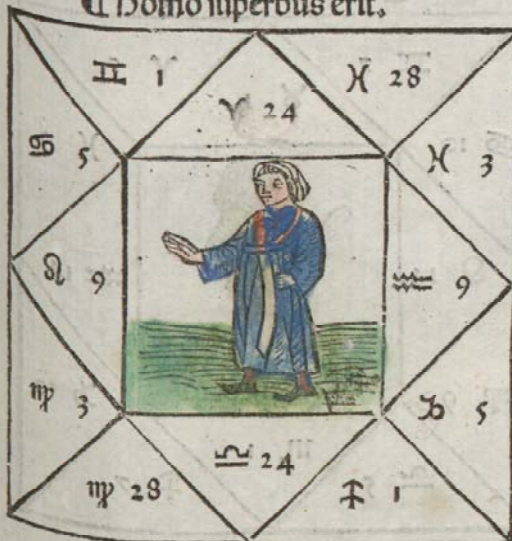 ¶ Homo superbus erit.
♊ 1
♈ 24
♓ 28
♋ 5
♓ 3
♌ 9
♒ 9
♍ 3
♑ 5
♎ 24
♍ 28
♐ 1